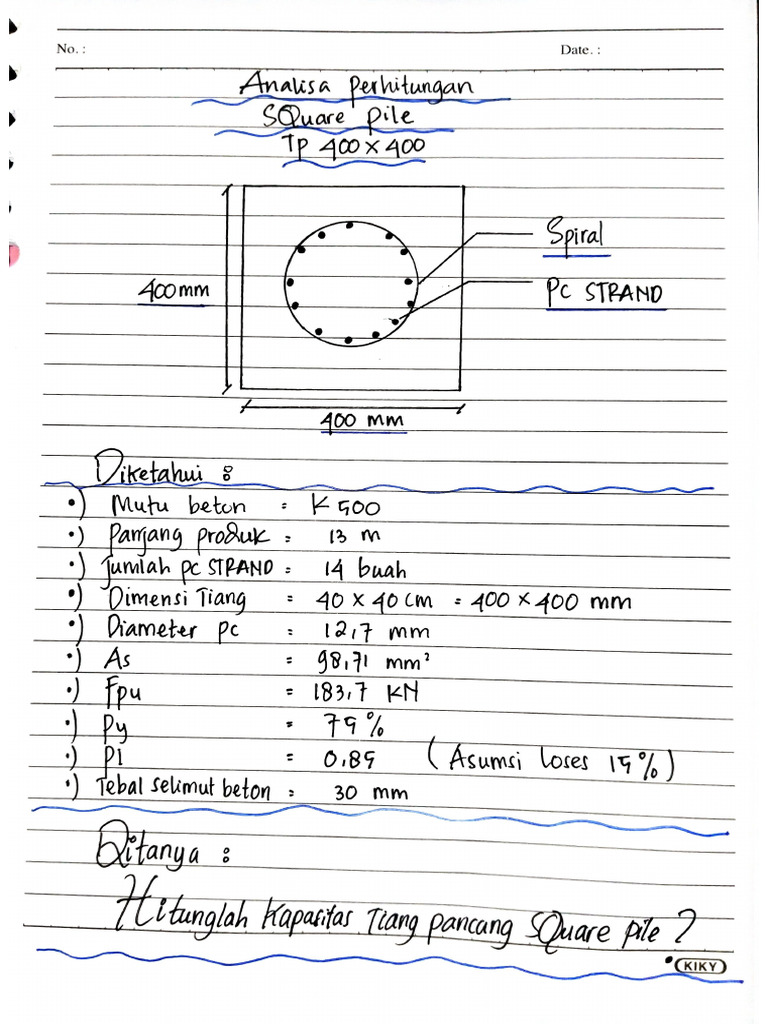 No. :
Date. :
Analisa perhitungan
SQuare pile
Tp 400 x 400
Spiral
400 mm
PC STRAND
400 mm
Diketahui :
•) Mutu beton = K 500
•) Panjang produk = 13 m
•) Jumlah pc STRAND = 14 buah
•) Dimensi Tiang = 40 x 40 cm = 400 x 400 mm
•) Diameter pc = 12,7 mm
•) As = 98,71 mm²
•) Fpu = 183,7 KN
•) Py = 75%
•) Pl = 0,85 (Asumsi loses 15%)
•) Tebal selimut beton = 30 mm
Ditanya :
Hitunglah Kapasitas Tiang pancang SQuare pile ?
KIKY